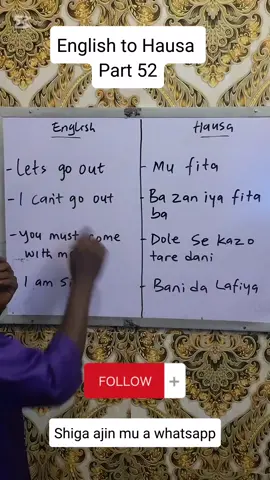 English to Hausa
Part 52
English
Hausa
- Lets go out
- Mu fita
- I can't go out
- Ba zan iya fita
ba
- you must come
with
- Dole se kazo
tare dani
I am
- Bani da Lafiya
FOLLOW +
Shiga ajin mu a whatsapp